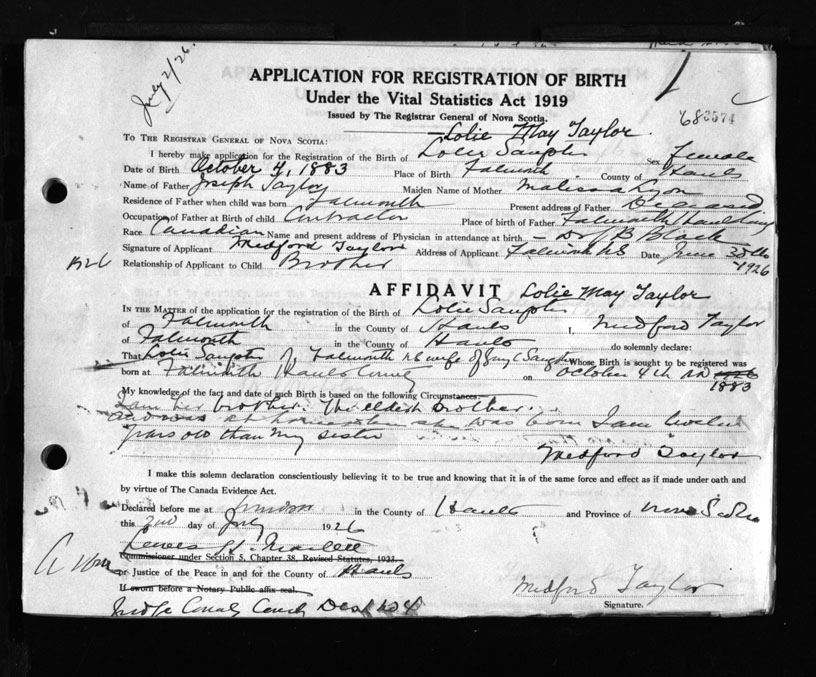 July 2/26.
APPLICATION FOR REGISTRATION OF BIRTH
Under the Vital Statistics Act 1919
Issued by The Registrar General of Nova Scotia.
683574
TO THE REGISTRAR GENERAL OF NOVA SCOTIA: Lolie May Taylor.
I hereby make application for the Registration of the Birth of Lolie Sex Female
Date of Birth October 4, 1883 Place of Birth Falmouth County of Hants
Name of Father Joseph Taylor Maiden Name of Mother Malissa Lyon
Residence of Father when child was born Falmouth Present address of Father Deceased
Occupation of Father at Birth of child Contractor Place of birth of Father Falmouth Hants County
Race Canadian Name and present address of Physician in attendance at birth – Dr J B Black
Signature of Applicant Medford Taylor Address of Applicant Falmouth NS Date June 30th
1926 Relationship of Applicant to Child Brother 1926
AFFIDAVIT Lolie May Taylor
IN THE MATTER of the application for the registration of the Birth of Lolie
of Falmouth in the County of Hants I, Medford Taylor
of Falmouth in the County of Hants do solemnly declare:
That Lolie of Falmouth NS wife of Whose Birth is sought to be registered was
born at Falmouth Hants County on October 4th AD 1883
My knowledge of the fact and date of such Birth is based on the following Circumstances:
I am her brother. The eldest brother.
and was at home when she was born I am twelve
years old than my sister
Medford Taylor
I make this solemn declaration conscientiously believing it to be true and knowing that it is of the same force and effect as if made under oath and
by virtue of The Canada Evidence Act.
Declared before me at Windsor in the County of Hants and Province of Nova Scotia
this 2nd day of July 1926
Commissioner under Section 5, Chapter 38, Revised Statutes, 1923.
or Justice of the Peace in and for the County of Hants
If sworn before a Notary Public affix seal.
Medford Taylor
Signature.
Judge County Court Dist